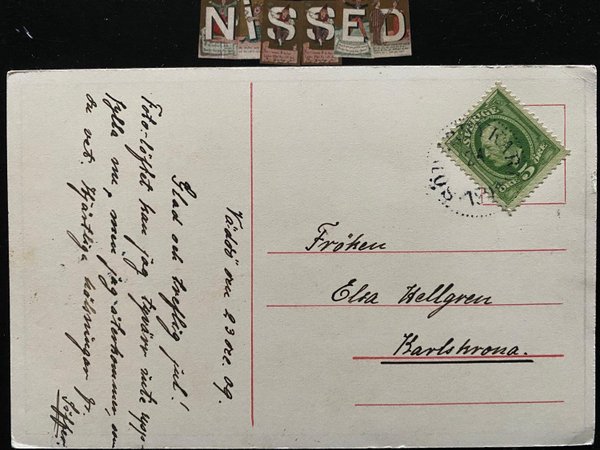 NiSSED
Väddö den 23 dec. 09.
Glad och trefflig jul!
Foto-löftet kan jag tyvärr inte upp-
fylla nu, men jag återkommer, som
du vet. Hjärtliga hälsningar fr.
SVERIGE
5 ÖRE
Fröken
Elsa Hellgren
Karlskrona.